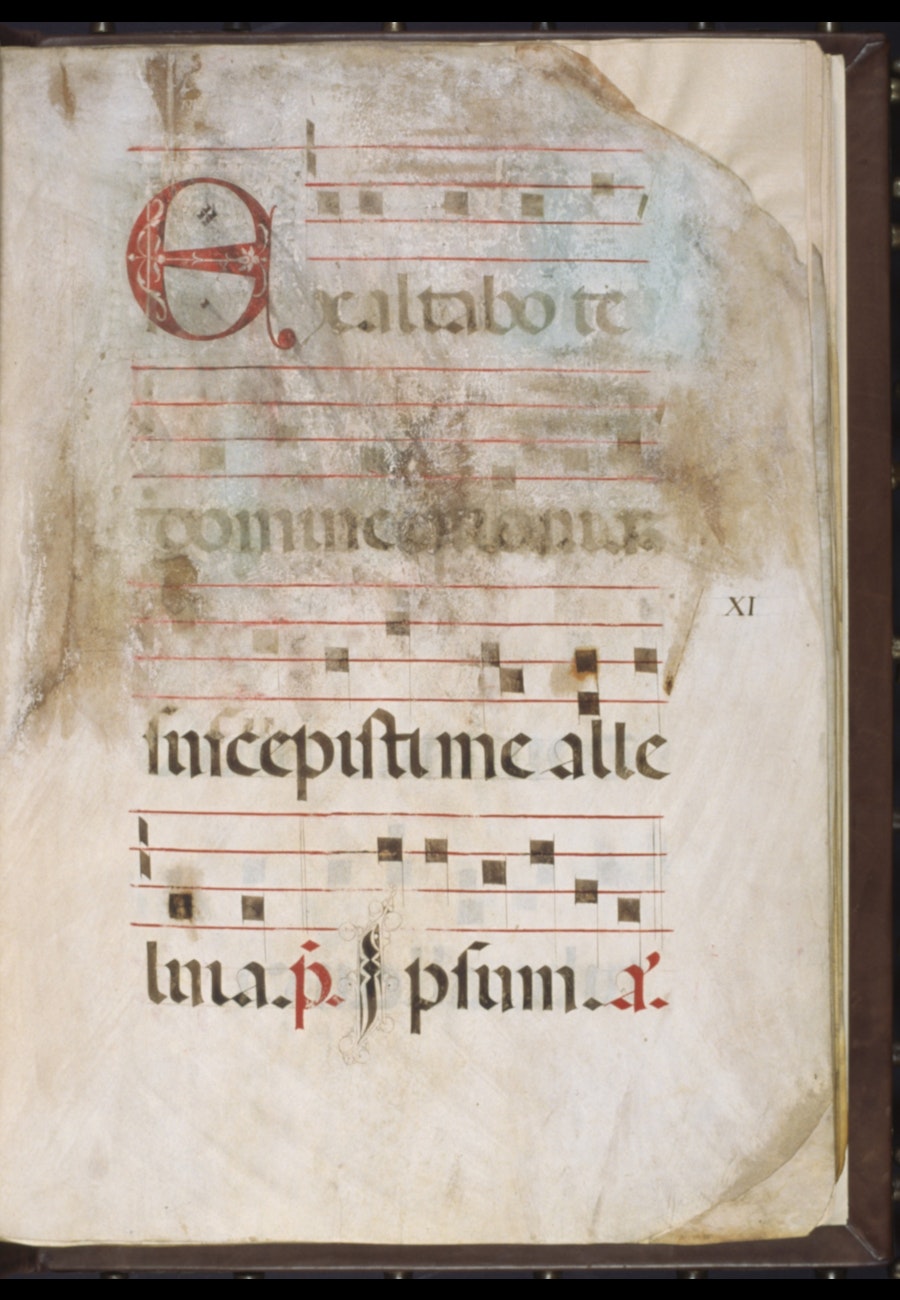 Exaltabo te
domine quoniam
XI
suscepisti me alle
luia. p̄. Ipsum. a͛.